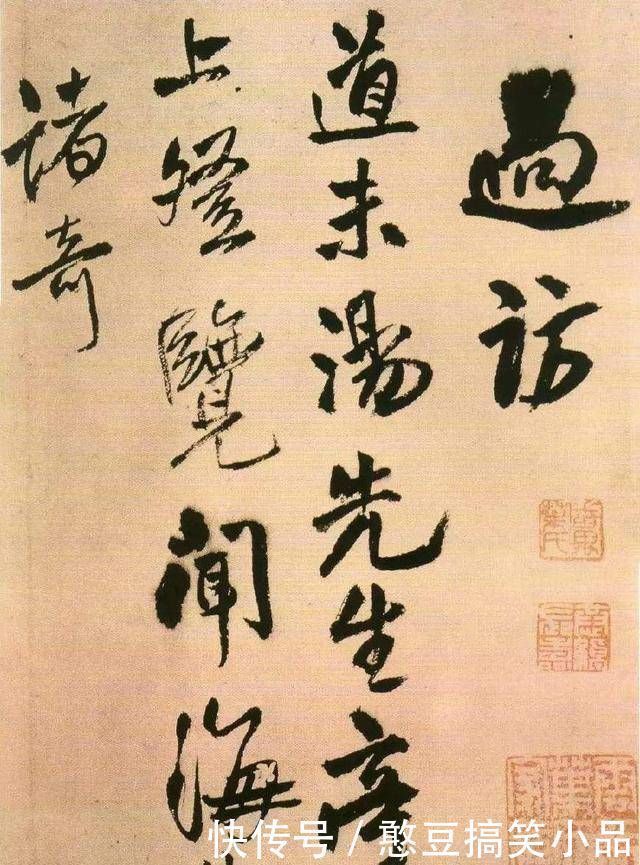 過訪
道未湯先生亭
上登覽聞海
諸奇
快传号 / 憨豆搞笑小品